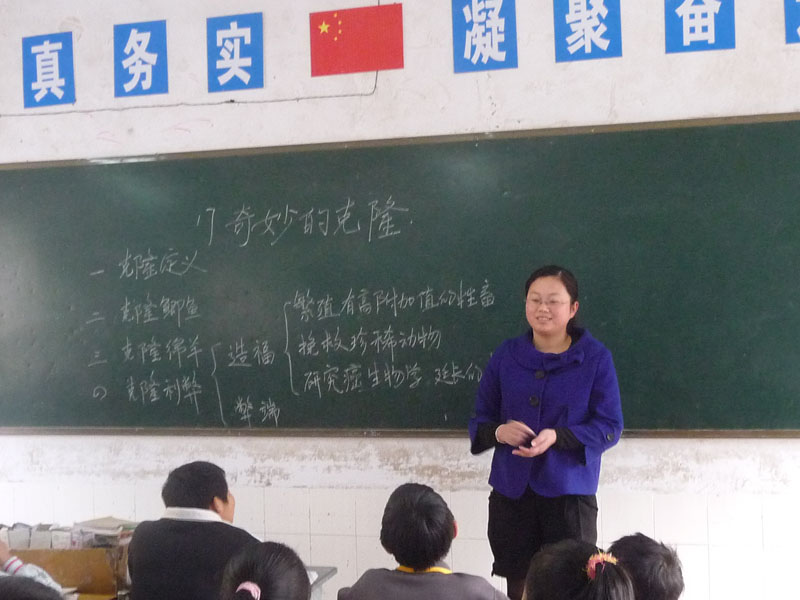 真务实 凝聚奋
17 奇妙的克隆.
一 克隆定义
二 克隆鲫鱼
三 克隆绵羊
四 克隆利弊
造福
弊端
繁殖有高附加值的牲畜
挽救珍稀动物
研究癌生物学.延长